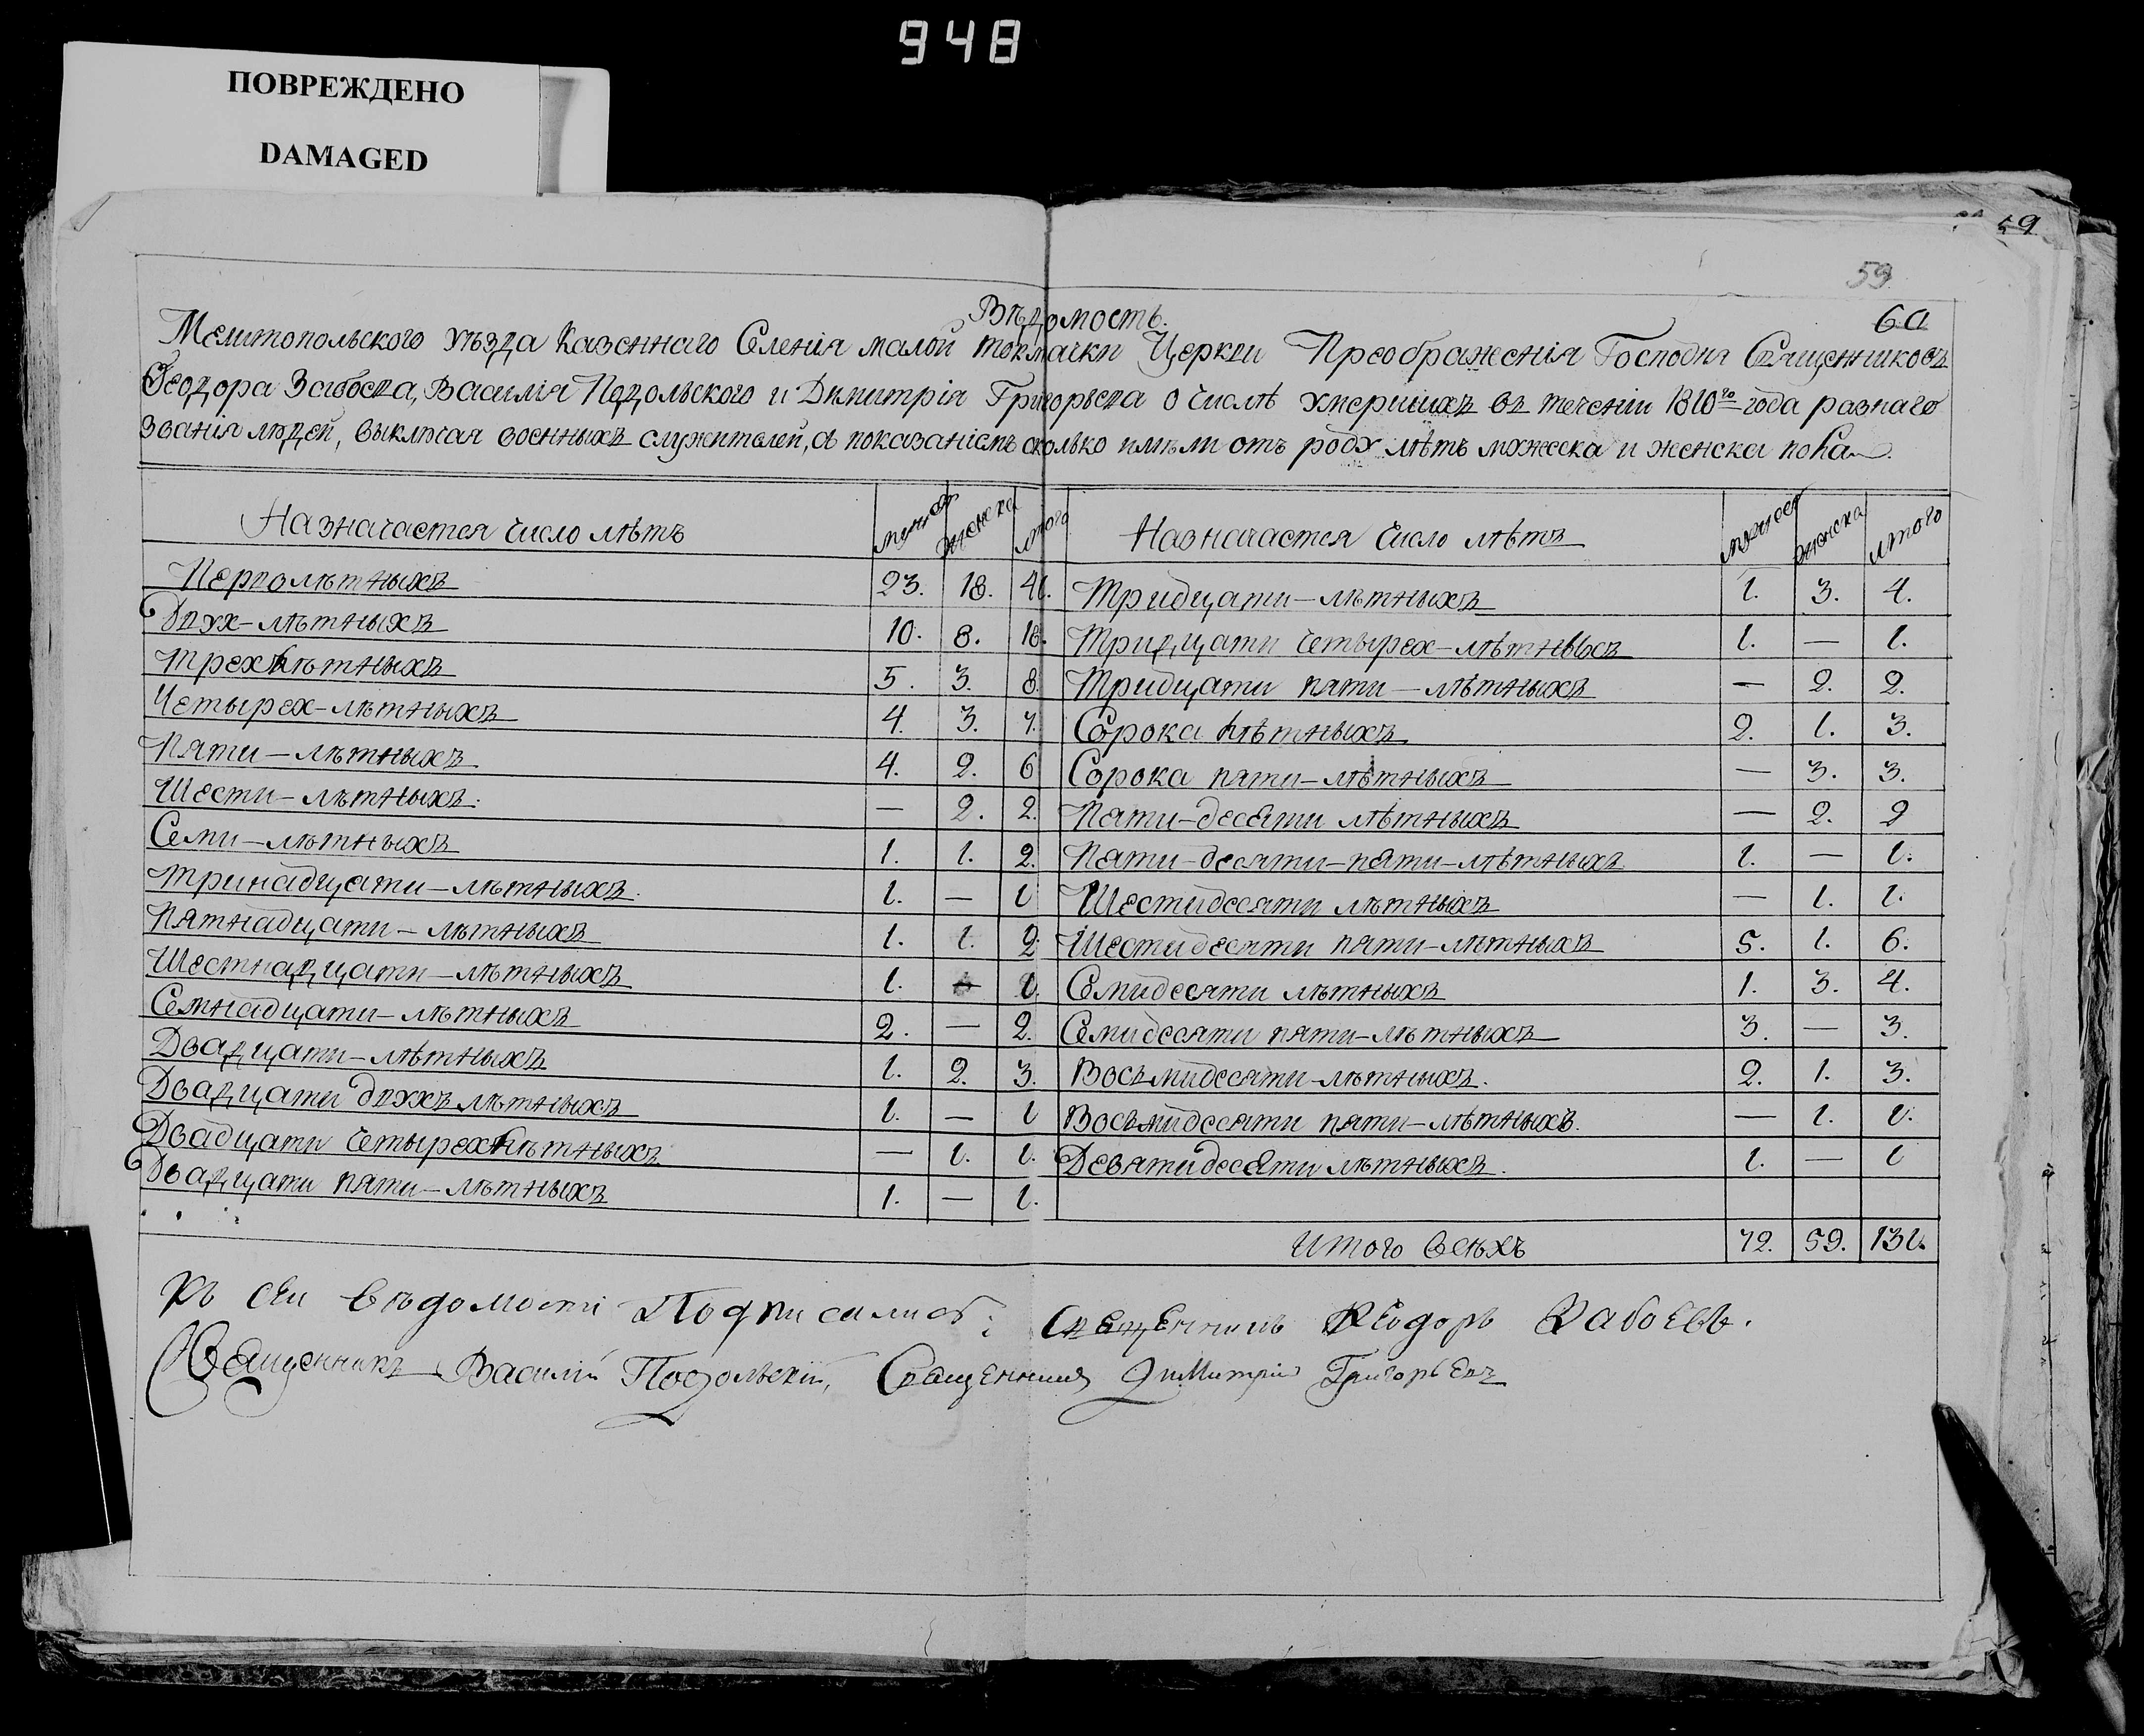 948
ПОВРЕЖДЕНО
DAMAGED
59
59
60
Вѣдомость.
Мелитопольского уѣзда Казеннаго Селенія малой токмачки Церкви Преображенія Господня Священниковъ
Феодора Забоева, Василія Подольского и Димитрія Григорьева о числѣ умершихъ въ теченіи 1810го года разнаго
званія людей, выключая военныхъ служителей, а показаніемъ сколько имѣли отъ роду лѣтъ мужеска и женска пола.
Назначается число лѣтъ мужеска женска итого Назначается число лѣтъ мужеска женска итого
Перволѣтныхъ 23. 18. 41. Тридцати-лѣтныхъ 1. 3. 4.
Двух-лѣтныхъ 10. 8. 18. Тридцати четырех-лѣтныхъ 1. — 1.
Трехлѣтныхъ 5. 3. 8. Тридцати пяти-лѣтныхъ — 2. 2.
Четырех-лѣтныхъ 4. 3. 7. Сорока лѣтныхъ 2. 1. 3.
Пяти-лѣтныхъ 4. 2. 6 Сорока пяти-лѣтныхъ — 3. 3.
Шести-лѣтныхъ. — 2. 2. Пяти-десяти лѣтныхъ — 2. 2
Семи-лѣтныхъ 1. 1. 2. Пяти-десяти-пяти-лѣтныхъ 1. — 1.
Тринадцати-лѣтныхъ. 1. — 1 Шестидесяти лѣтныхъ — 1. 1.
Пятнадцати-лѣтныхъ 1. 1. 2. Шестидесяти пяти-лѣтныхъ 5. 1. 6.
Шестнадцати-лѣтныхъ 1. — 1. Семидесяти лѣтныхъ 1. 3. 4.
Семнадцати-лѣтныхъ 2. — 2. Семидесяти пяти-лѣтныхъ 3. — 3.
Двадцати-лѣтныхъ 1. 2. 3. Восьмидесяти-лѣтныхъ. 2. 1. 3.
Двадцати двухъ лѣтныхъ 1. — 1 Восьмидесяти пяти-лѣтныхъ. — 1. 1.
Двадцати четырехлѣтныхъ — 1. 1. Девятидесяти лѣтныхъ. 1. — 1
Двадцати пяти-лѣтныхъ 1. — 1.
Итого всѣхъ 72. 59. 131.
Къ сеи вѣдомости Подписались: Священникъ Феодоръ Забоевъ.
Священникъ Василій Подольскій, Священникъ Димитрій Григорьевъ